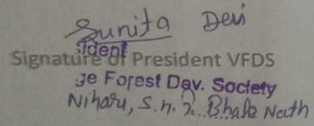 Sunita Devi
sident
Signature of President VFDS
ge Forest Dev. Society
Niharu, S.h. 2. Bhale Nath